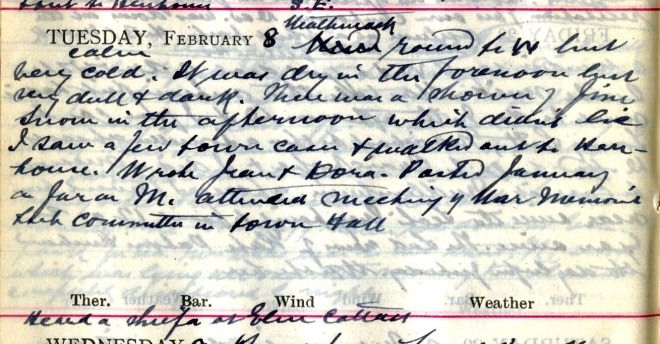 S.E.
TUESDAY, FEBRUARY 8 Wind round to W but
very cold. calm It was dry in the forenoon but
very dull & dark. There was a shower of fine
snow in the afternoon which didn't lie
I saw a few town cases & walked out to Hen-
house. Wrote Jean & Dora. Posted January
a/c for M. attended meeting of War Memorial
Sub Committee in Town Hall
Ther. Bar. Wind Weather
Heard a at Cottage
WEDNESDAY